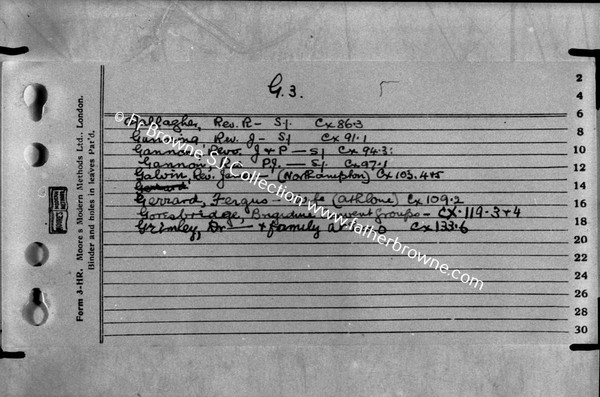 G.3.
2
4
6
Gallagher, Rev. R - S.J. Cx 86.3
8
Rev. J - SJ Cx 91.1
10
Gannon, Revs. J & P - SJ Cx 94.3
Gannon, P.J. - S.J. Cx 97.1
12
Galvin, Rev. (Northampton) Cx 103.4+5
14
Gerrard
16
Gerrard, Fergus - (Athlone) Cx 109.2
Goresbridge, Brigidine groups - CX.119.3+4
18
Grimley, Dr + family Cx 133.6
20
22
24
26
28
30
Form 3-HR. Moore's Modern Methods Ltd., London.
Binder and holes in leaves Pat'd.
© Fr Browne S.J. Collection www.fatherbrowne.com